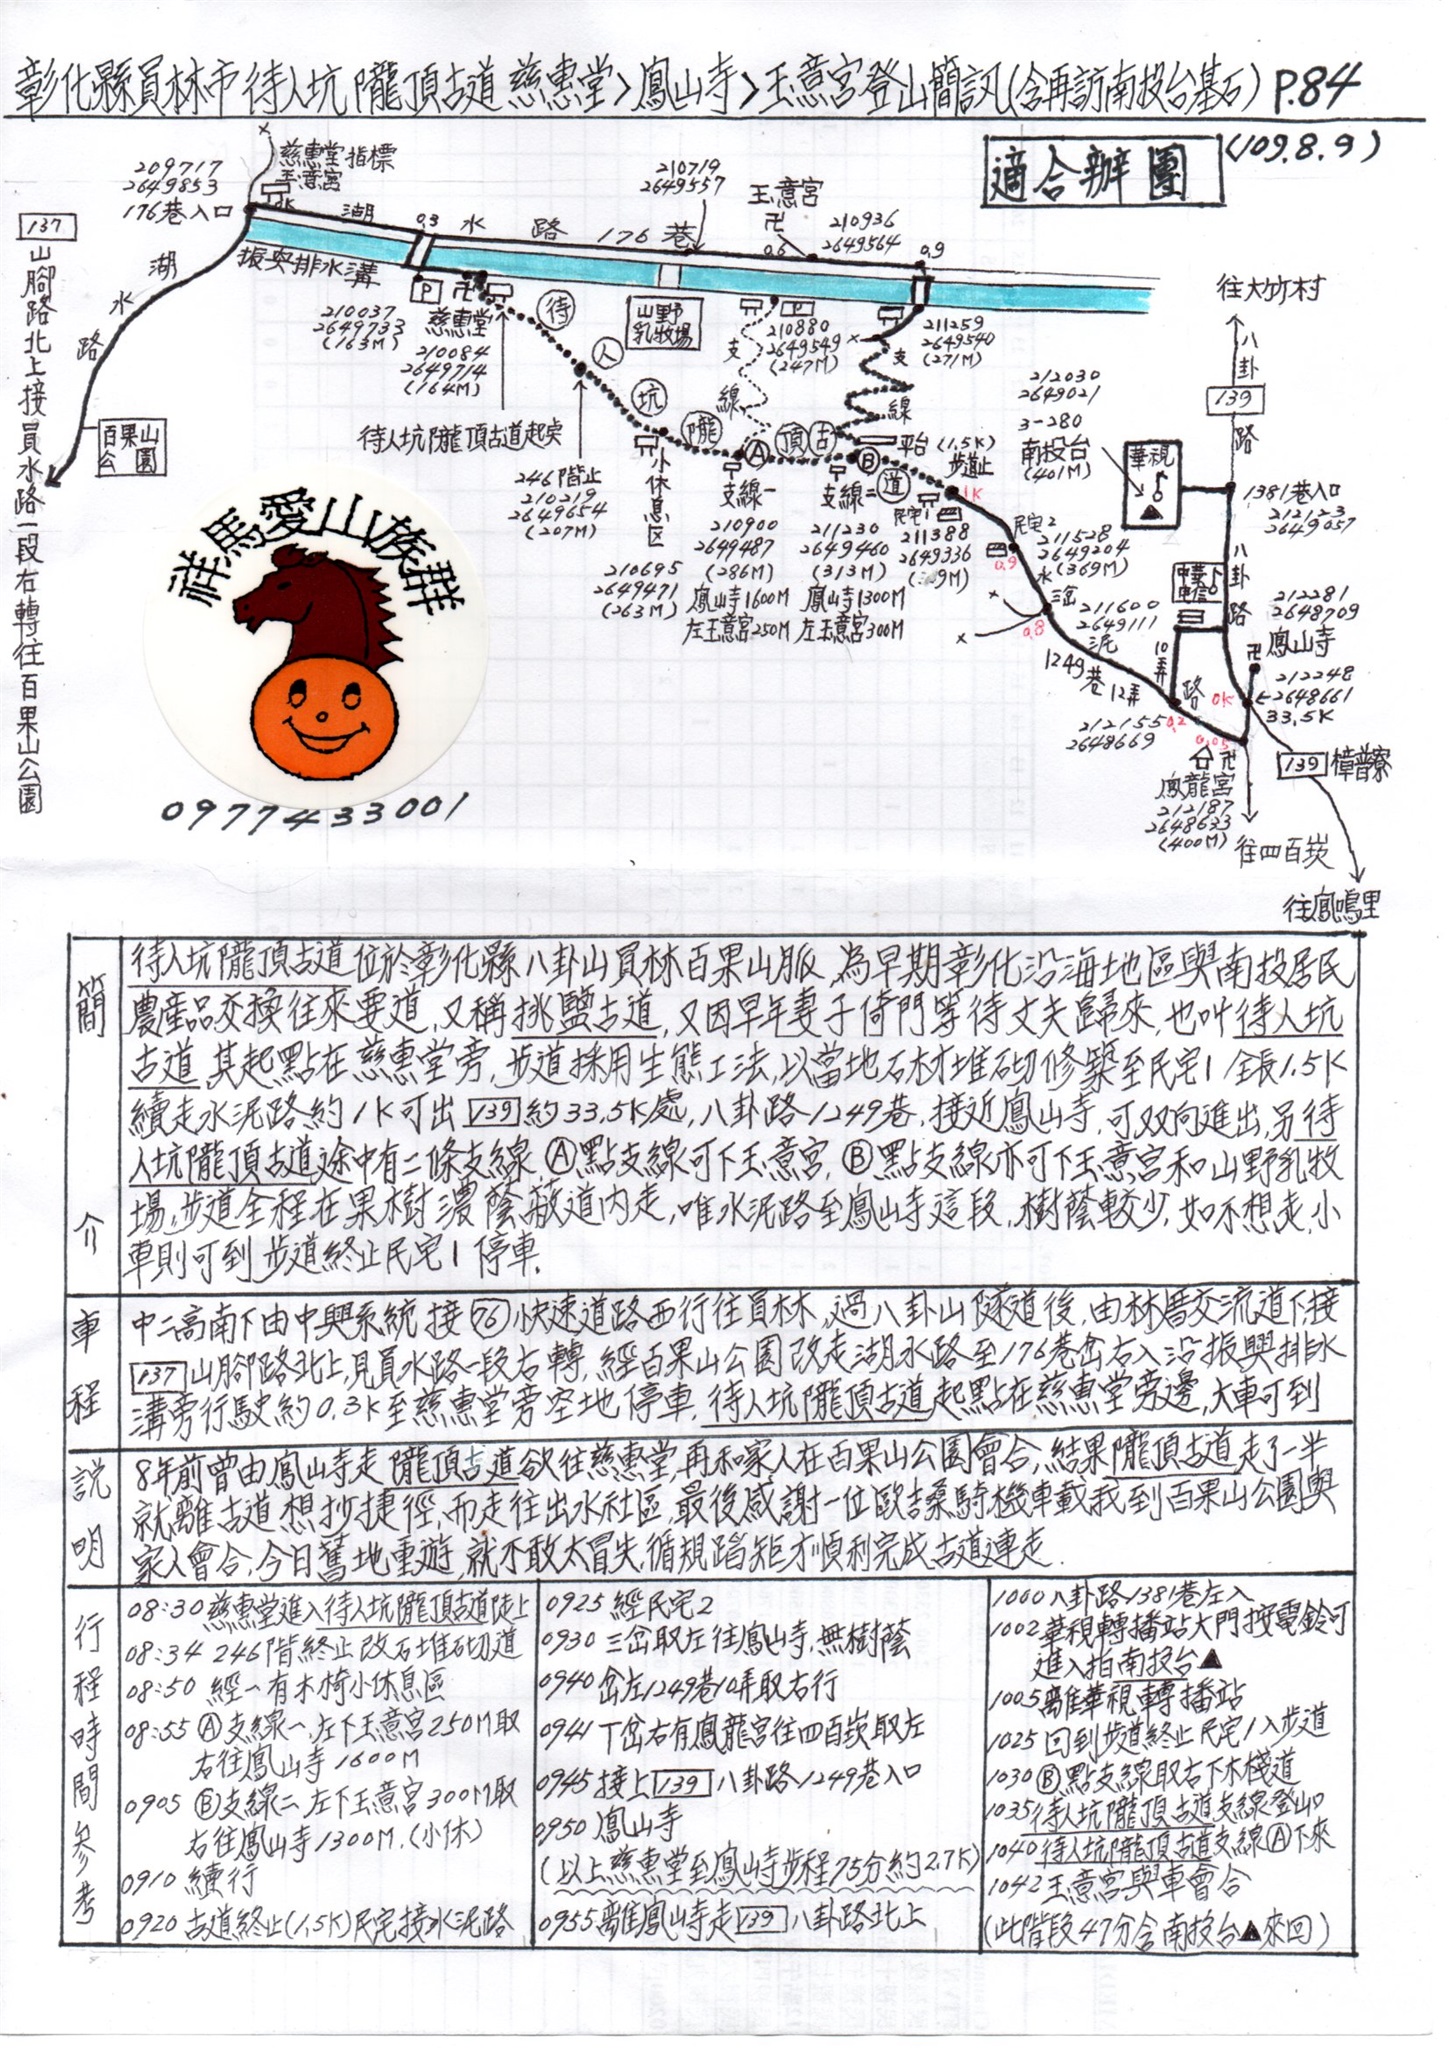 彰化縣員林市待人坑隴頂古道慈惠堂>鳳山寺>玉意宮登山簡訊(含再訪南投台基石) P.84
(109.8.9)
適合辦團
慈惠堂指標
玉意宮
209717
2649853
176巷入口
0K
湖水路176巷
0.3
210719
2649557
玉意宮
卍
0.6
210936
2649564
0.9
振興排水溝
137
山腳路北上接員水路一段右轉往百果山公園
湖水路
百果山
公園
P
卍
慈惠堂
210037
2649733
(163M)
210084
2649714
(164M)
待人坑隴頂古道起點
待人坑隴頂古道
山野
乳牧場
支線
P
210880
2649549
(247M)
支線
211259
2649540
(271M)
246階止
210219
2649654
(207M)
小休息區
210695
2649471
(263M)
A
支線一
210900
2649487
(286M)
鳳山寺1600M
左玉意宮250M
B
支線二
211230
2649460
(313M)
鳳山寺1300M
左玉意宮300M
平台
(1.5K)
步道止
1K
民宅1
211388
2649336
民宅2
0.9
211528
2649204
(369M)
水泥路
三岔
0.8
211600
2649111
1249巷
12弄
10弄
212155
2648669
0.2
0.05
0K
往大竹村
八卦路
139
212030
2649021
3-280
南投台
(401M)
華視
1381巷入口
212123
2649057
八卦路
中華
電信
212281
2648709
鳳山寺
卍
212248
2648661
33.5K
139
樟普寮
卍
鳳龍宮
212187
2648633
(400M)
往四百崁
往鳳鳴里
祥馬愛山族群
0977433001
簡介
待人坑隴頂古道位於彰化縣八卦山員林百果山脈,為早期彰化沿海地區與南投居民
農產品交換往來要道,又稱挑鹽古道,又因早年妻子倚門等待丈夫歸來,也叫待人坑
古道,其起點在慈惠堂旁,步道採用生態工法,以當地石材堆砌修築至民宅1全長1.5K
續走水泥路約1K可出139約33.5K處,八卦路1249巷,接近鳳山寺,可双向進出,另待
人坑隴頂古道途中有二條支線,Ⓐ點支線可下玉意宮,Ⓑ點支線亦可下玉意宮和山野乳牧
場,步道全程在果樹濃蔭蔽道內走,唯水泥路至鳳山寺這段,樹蔭較少,如不想走,小
車則可到步道終止民宅1停車.
車程
中二高南下由中興系統接76快速道路西行往員林,過八卦山隧道後,由林厝交流道下接
137山腳路北上,見員水路一段右轉,經百果山公園改走湖水路至176巷岔右入沿振興排水
溝旁行駛約0.3K至慈惠堂旁空地停車,待人坑隴頂古道起點在慈惠堂旁邊,大車可到
說明
8年前曾由鳳山寺走隴頂古道欲往慈惠堂,再和家人在百果山公園會合,結果隴頂古道走了一半
就離古道想抄捷徑,而走往出水社區,最後感謝一位歐吉桑騎機車載我到百果山公園與
家人會合,今日舊地重遊,就不敢太冒失,循規蹈矩才順利完成古道連走.
行程時間參考
08:30 慈惠堂進入待人坑隴頂古道陡上
08:34 246階終止改石堆砌道
08:50 經一有木椅小休息區
08:55 Ⓐ支線一,左下玉意宮250M取
右往鳳山寺1600M
0905 Ⓑ支線二左下玉意宮300M取
右往鳳山寺1300M.(小休)
0910 續行
0920 古道終止(1.5K)民宅接水泥路
0925 經民宅2
0930 三岔取左往鳳山寺,無樹蔭
0940 岔左1249巷10弄取右行
0941 丁岔右有鳳龍宮往四百崁取左
0945 接上139八卦路1249巷入口
0950 鳳山寺
(以上慈惠堂至鳳山寺步程75分約2.7K)
0955 離鳳山寺走139八卦路北上
1000 八卦路1381巷左入
1002 華視轉播站大門按電鈴可
進入拍南投台▲
1005 離華視轉播站
1025 回到步道終止民宅1入步道
1030 Ⓑ點支線取右下木棧道
1035 待人坑隴頂古道支線登山口
1040 待人坑隴頂古道支線Ⓐ下來
1042 玉意宮與車會合
(此階段47分含南投台▲來回)